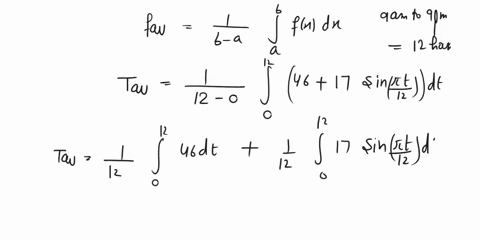 fav = 1/(b-a) ∫_a^b f(x) dx
9am to 9pm
= 12 hrs
Tav = 1/(12-0) ∫_0^12 (46 + 17 sin(πt/12)) dt
Tav = 1/12 ∫_0^12 46 dt + 1/12 ∫_0^12 17 sin(πt/12) d